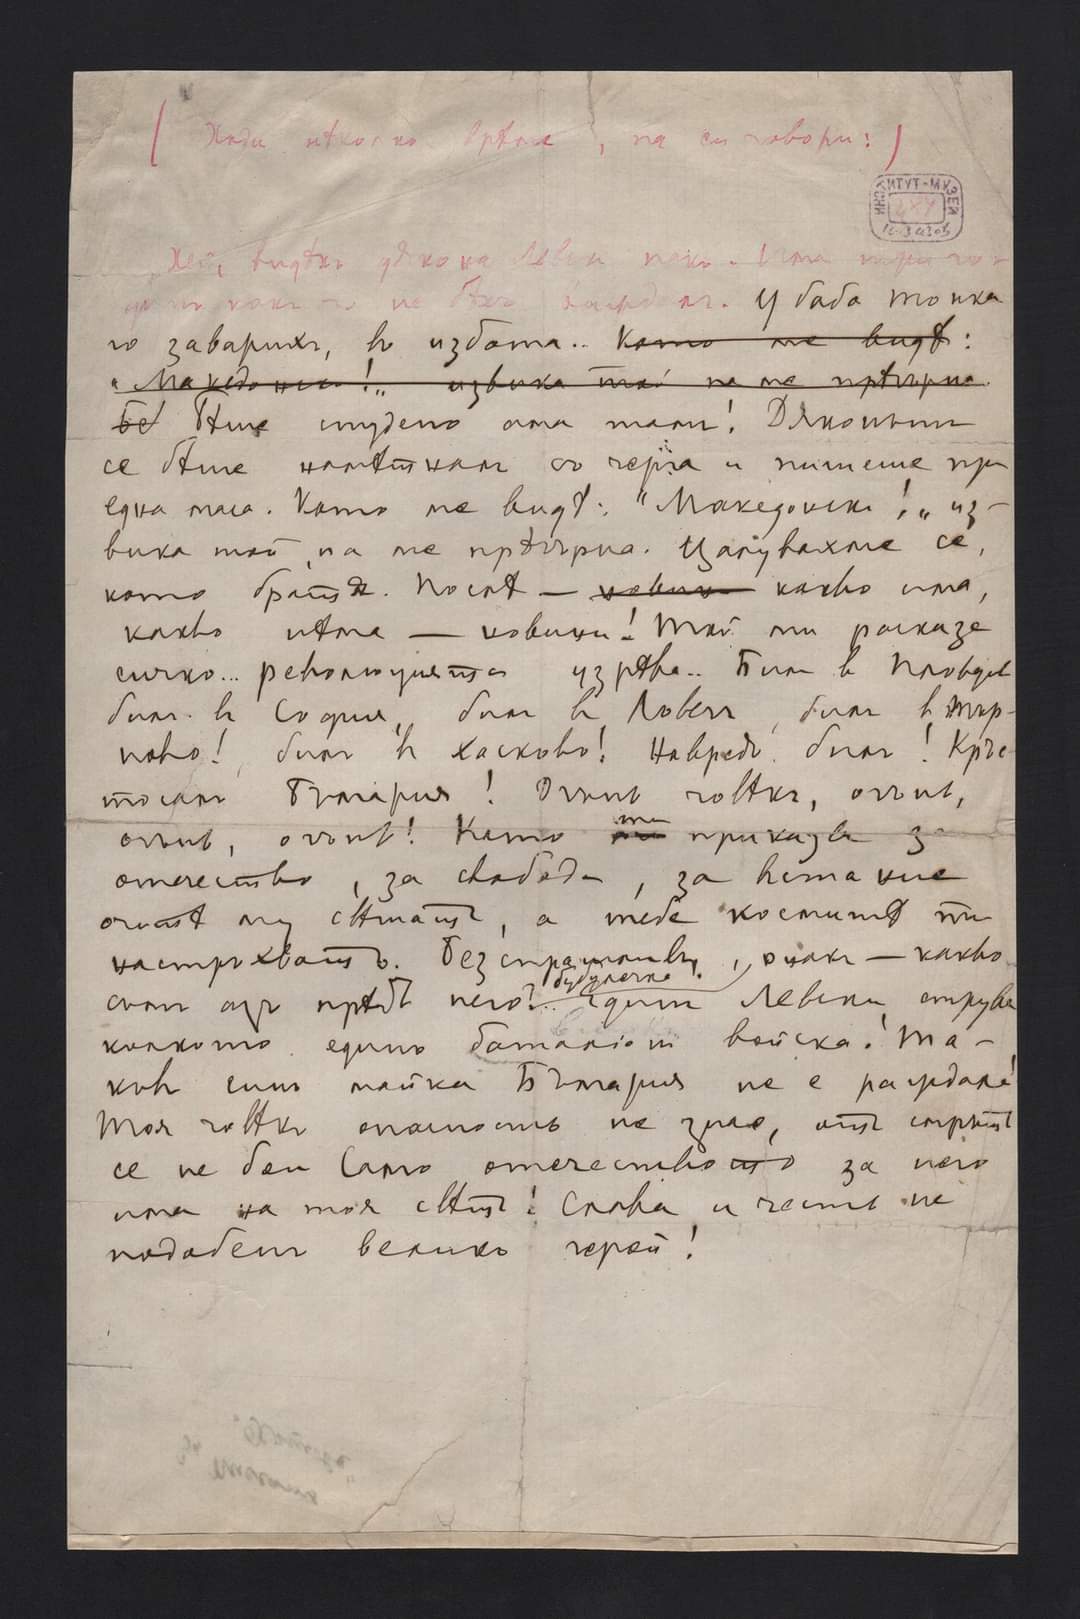 ( Ходи нѣколко врѣме, па си говори: )
ИНСТИТУТ-МУЗЕЙ
Хей, видѣхъ дякона Левски пакъ. Има три го-
не бѣхъ У баба Тонка
го заварихъ, въ избата.. Като ме видѣ:
„Македонски!„ извика той па ме прѣгърна.
Бѣ Бѣше студено ама тамъ! Дяконътъ
се бѣше намѣтналъ съ черга и пишеше при
една маса. Като ме видѣ: "Македонски!„ из-
вика той, па ме прѣгърна. Цалувахме се,
като братя. Послѣ — новини какво има,
какво нѣма — новини! Той ми расказа
сичко... революцията узрѣва.. Билъ в Пловдив
билъ въ София, билъ въ Ловечъ, билъ в Тър-
ново! билъ въ Хасково! Навредъ билъ! Кръс-
тосалъ България! Огънь човѣкъ, огънь,
огънь, огънь! Като ти приказва за
отечество, за свобода, за въстание
очитѣ му свѣтатъ, а тебе коститѣ ти
настръхватъ. Безстрашливъ, юнакъ — какво
съмъ азъ прѣдъ него?.. бубулечка. Единъ Левски струва
колкото единъ баталионъ войска! Та-
къв синъ майка България не е раждала!
Тоя човѣкъ опасность не знае, отъ смрьть
се не бои Само отечеството за него
има на тоя свѣтъ! Слава и честь на
подобенъ великъ герой!